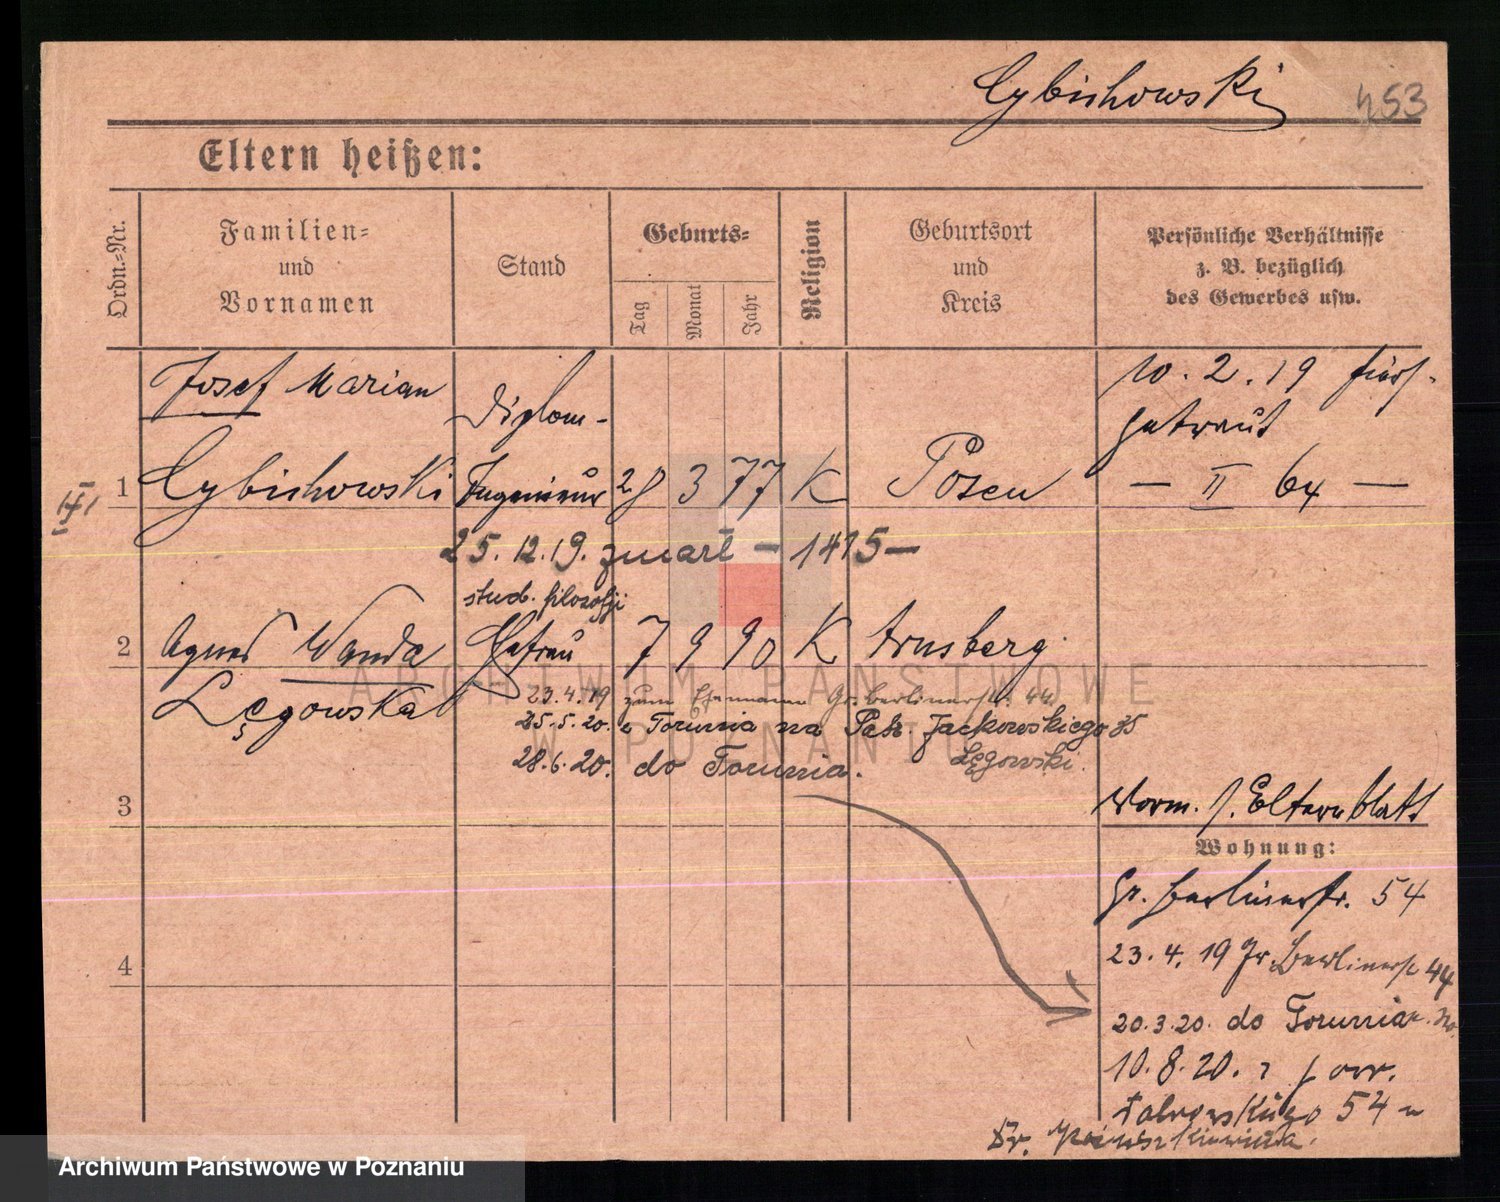 Cybichowski 453
Eltern heißen:
Ordn.-Nr.
Familien-
und
Vornamen
Stand
Geburts-
Tag
Monat
Jahr
Religion
Geburtsort
und
Kreis
Persönliche Verhältnisse
z. B. bezüglich
des Gewerbes usw.
Josef Marian
Diplom-
10. 2. 19
getraut
1 Cybichowski Ingenieur 28 3 77 K Posen — II 64 —
25. 12. 19. zmarł — 1415 —
stud. filozofji
2 Agnes Wanda Ehefrau 7 9 90 K Arnsberg
Łęgowska
23.4.19 zum Ehemann Gr. Berlinerstr. 44.
25.5.20. z Torunia na Patr. Jackowskiego 35
Łęgowski.
28.6.20. do Torunia.
ARCHIWUM PAŃSTWOWE
W POZNANIU
3
Vorm. s. Elternblatt
Wohnung:
Gr. Berlinerstr. 54
23. 4. 19 Gr. Berlinerstr 44
4
20.3.20. do Torunia
10.8.20. z
54
Dr.
Archiwum Państwowe w Poznaniu